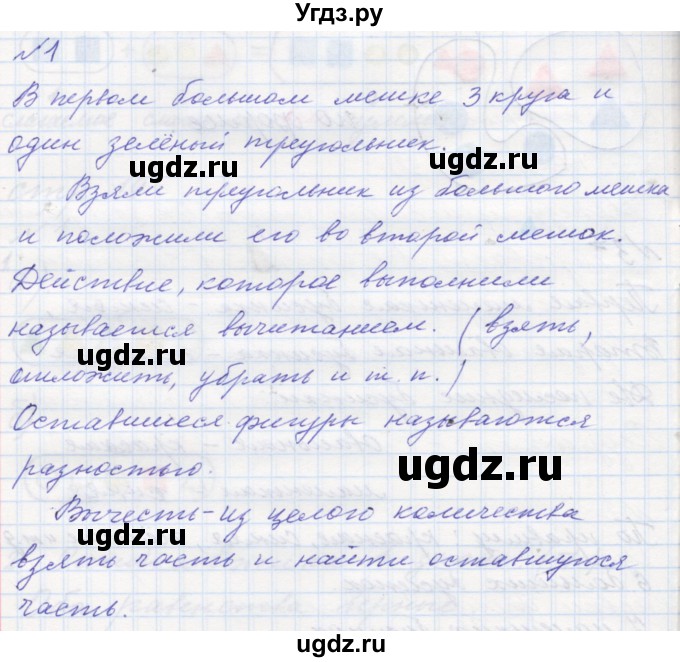 Угдз.ру
№1
В первом большом мешке 3 круга и
один зелёный треугольник.
ugdz.ru
ugdz.ru
Взяли треугольник из большого мешка
и положили его во второй мешок.
Действие, которое выполнили
называется вычитанием. (взять,
ugdz.ru
отложить, убрать и т.п.)
Оставшиеся фигуры называются
разностью.
ugdz.ru
Вычесть - из целого количества
ugdz.ru
взять часть и найти оставшуюся
часть.
ugdz.ru
ugdz.ru